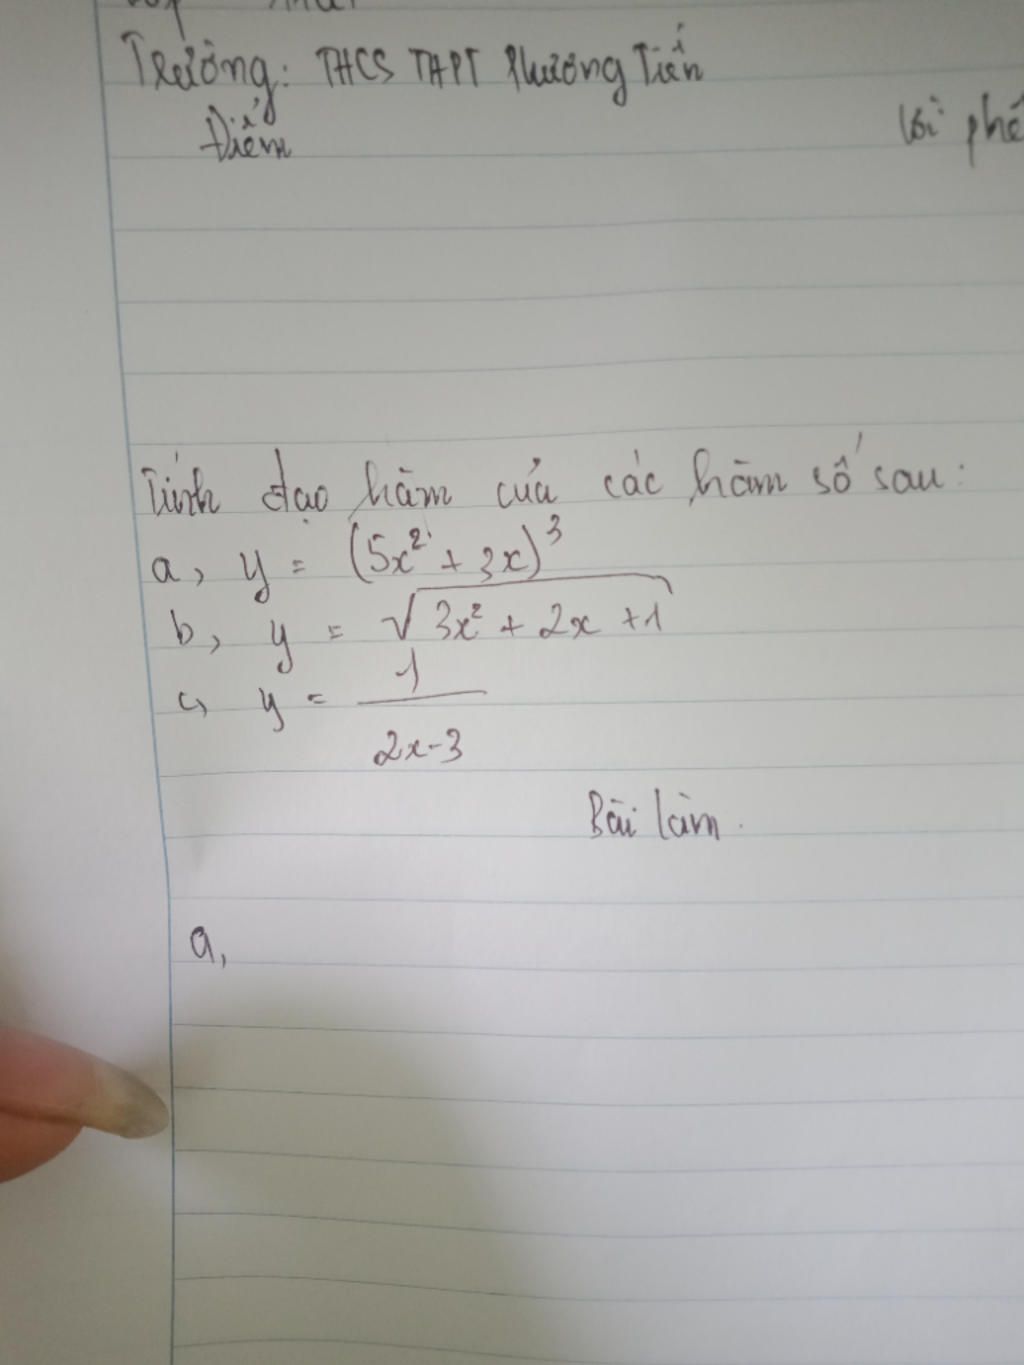 Trường: THCS THPT Phương Tiến
Điểm
Lời phê
Tính đạo hàm của các hàm số sau:
a, y = (5x² + 3x)³
b, y = √(3x² + 2x + 1)
c, y = 1/(2x-3)
Bài làm.
a,